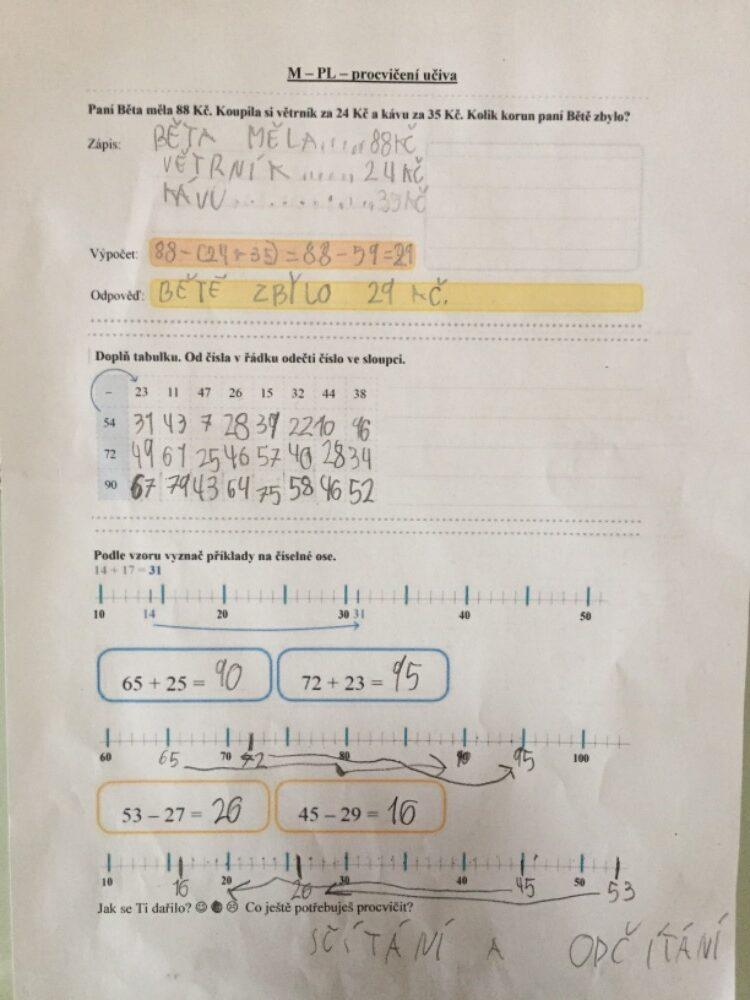 M – PL – procvičení učiva
Paní Běta měla 88 Kč. Koupila si větrník za 24 Kč a kávu za 35 Kč. Kolik korun paní Bětě zbylo?
Zápis: BĚTA MĚLA.....88KČ
VĚTRNÍK ...... 24KČ
KÁVU..............35KČ
Výpočet: 88-(24+35)=88-59=29
Odpověď: BĚTĚ ZBYLO 29 KČ.
Doplň tabulku. Od čísla v řádku odečti číslo ve sloupci.
– 23 11 47 26 15 32 44 38
54 31 43 7 28 39 22 10 16
72 49 61 25 46 57 40 28 34
90 67 79 43 64 75 58 46 52
Podle vzoru vyznač příklady na číselné ose.
14 + 17 = 31
10 14 20 30 31 40 50
65 + 25 = 90 72 + 23 = 95
60 65 70 72 80 90 95 100
53 – 27 = 26 45 – 29 = 16
10 16 20 26 30 40 45 50 53
Jak se Ti dařilo? ☺ 😐 ☹ Co ještě potřebuješ procvičit?
SČÍTÁNÍ A ODČÍTÁNÍ